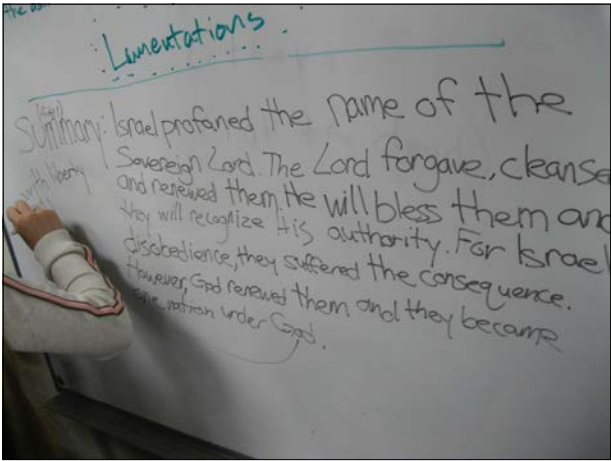 Lamentations
Summary: Israel profaned the name of the
Sovereign Lord. The Lord forgave, cleanse
and renewed them. He will bless them and
they will recognize His authority. For Israel
disobedience, they suffered the consequence.
However, God renewed them and they became
one nation under God.
with liberty